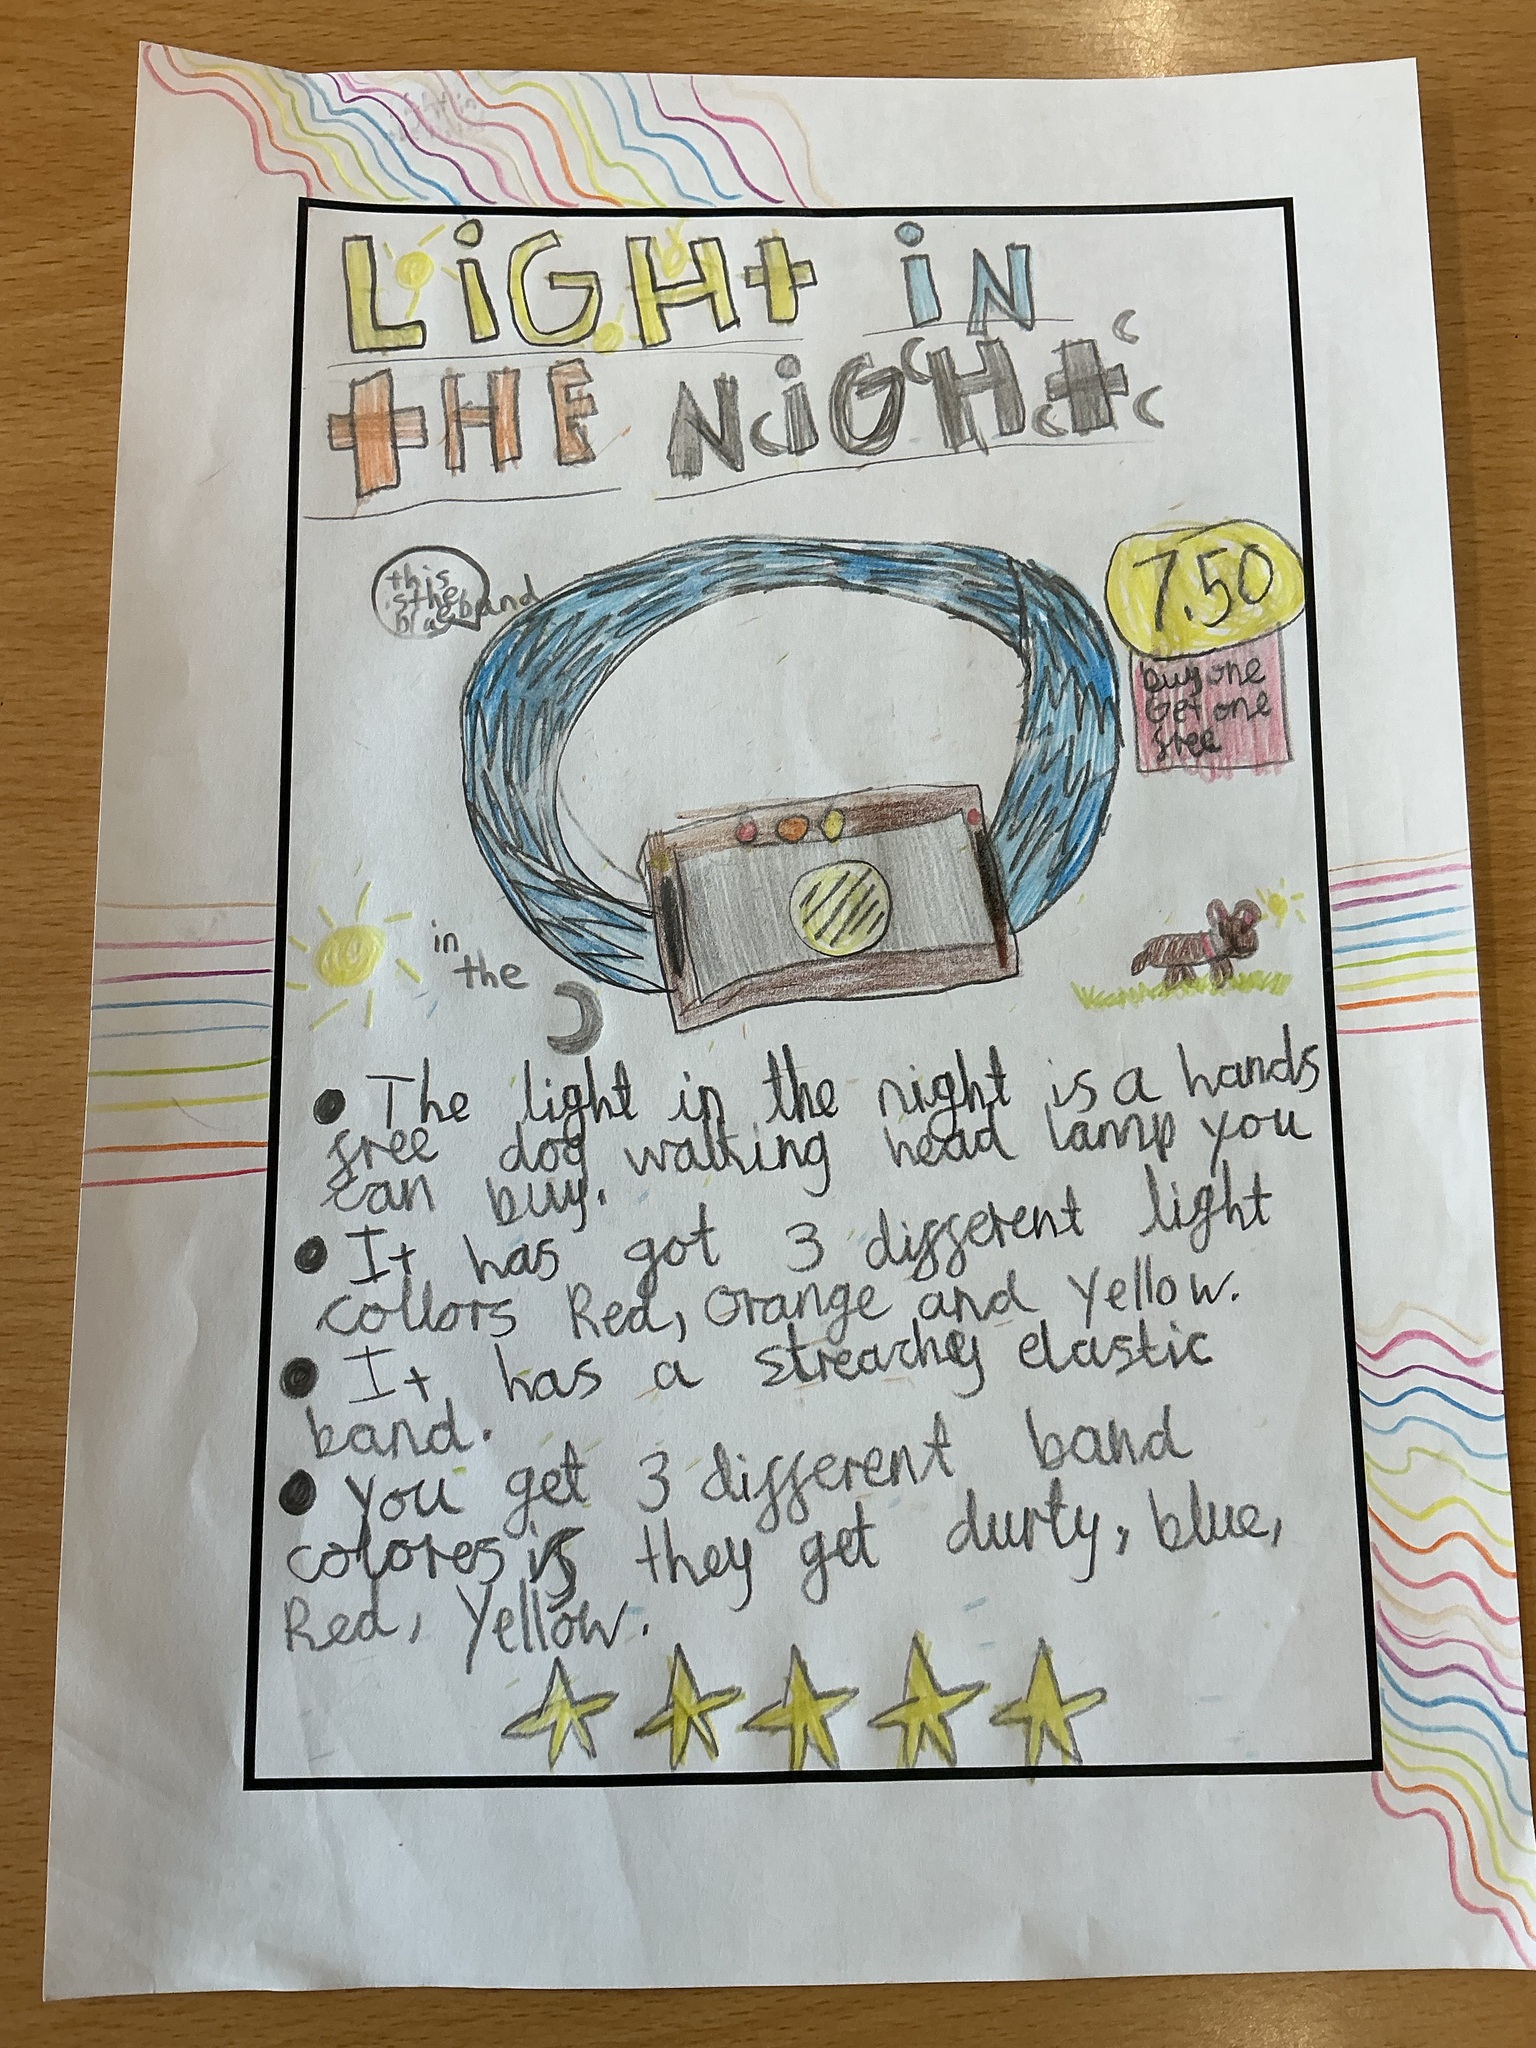 LiGHt iN
tHE NiGHt
this
is the band
7.50
buy one
Get one
free
in
the
The light in the night is a hands
free dog walking head lamp you
can buy.
It has got 3 different light
collors Red, Orange and Yellow.
It has a streachey elastic
band.
You get 3 different band
colores if they get durty, blue,
Red, Yellow.